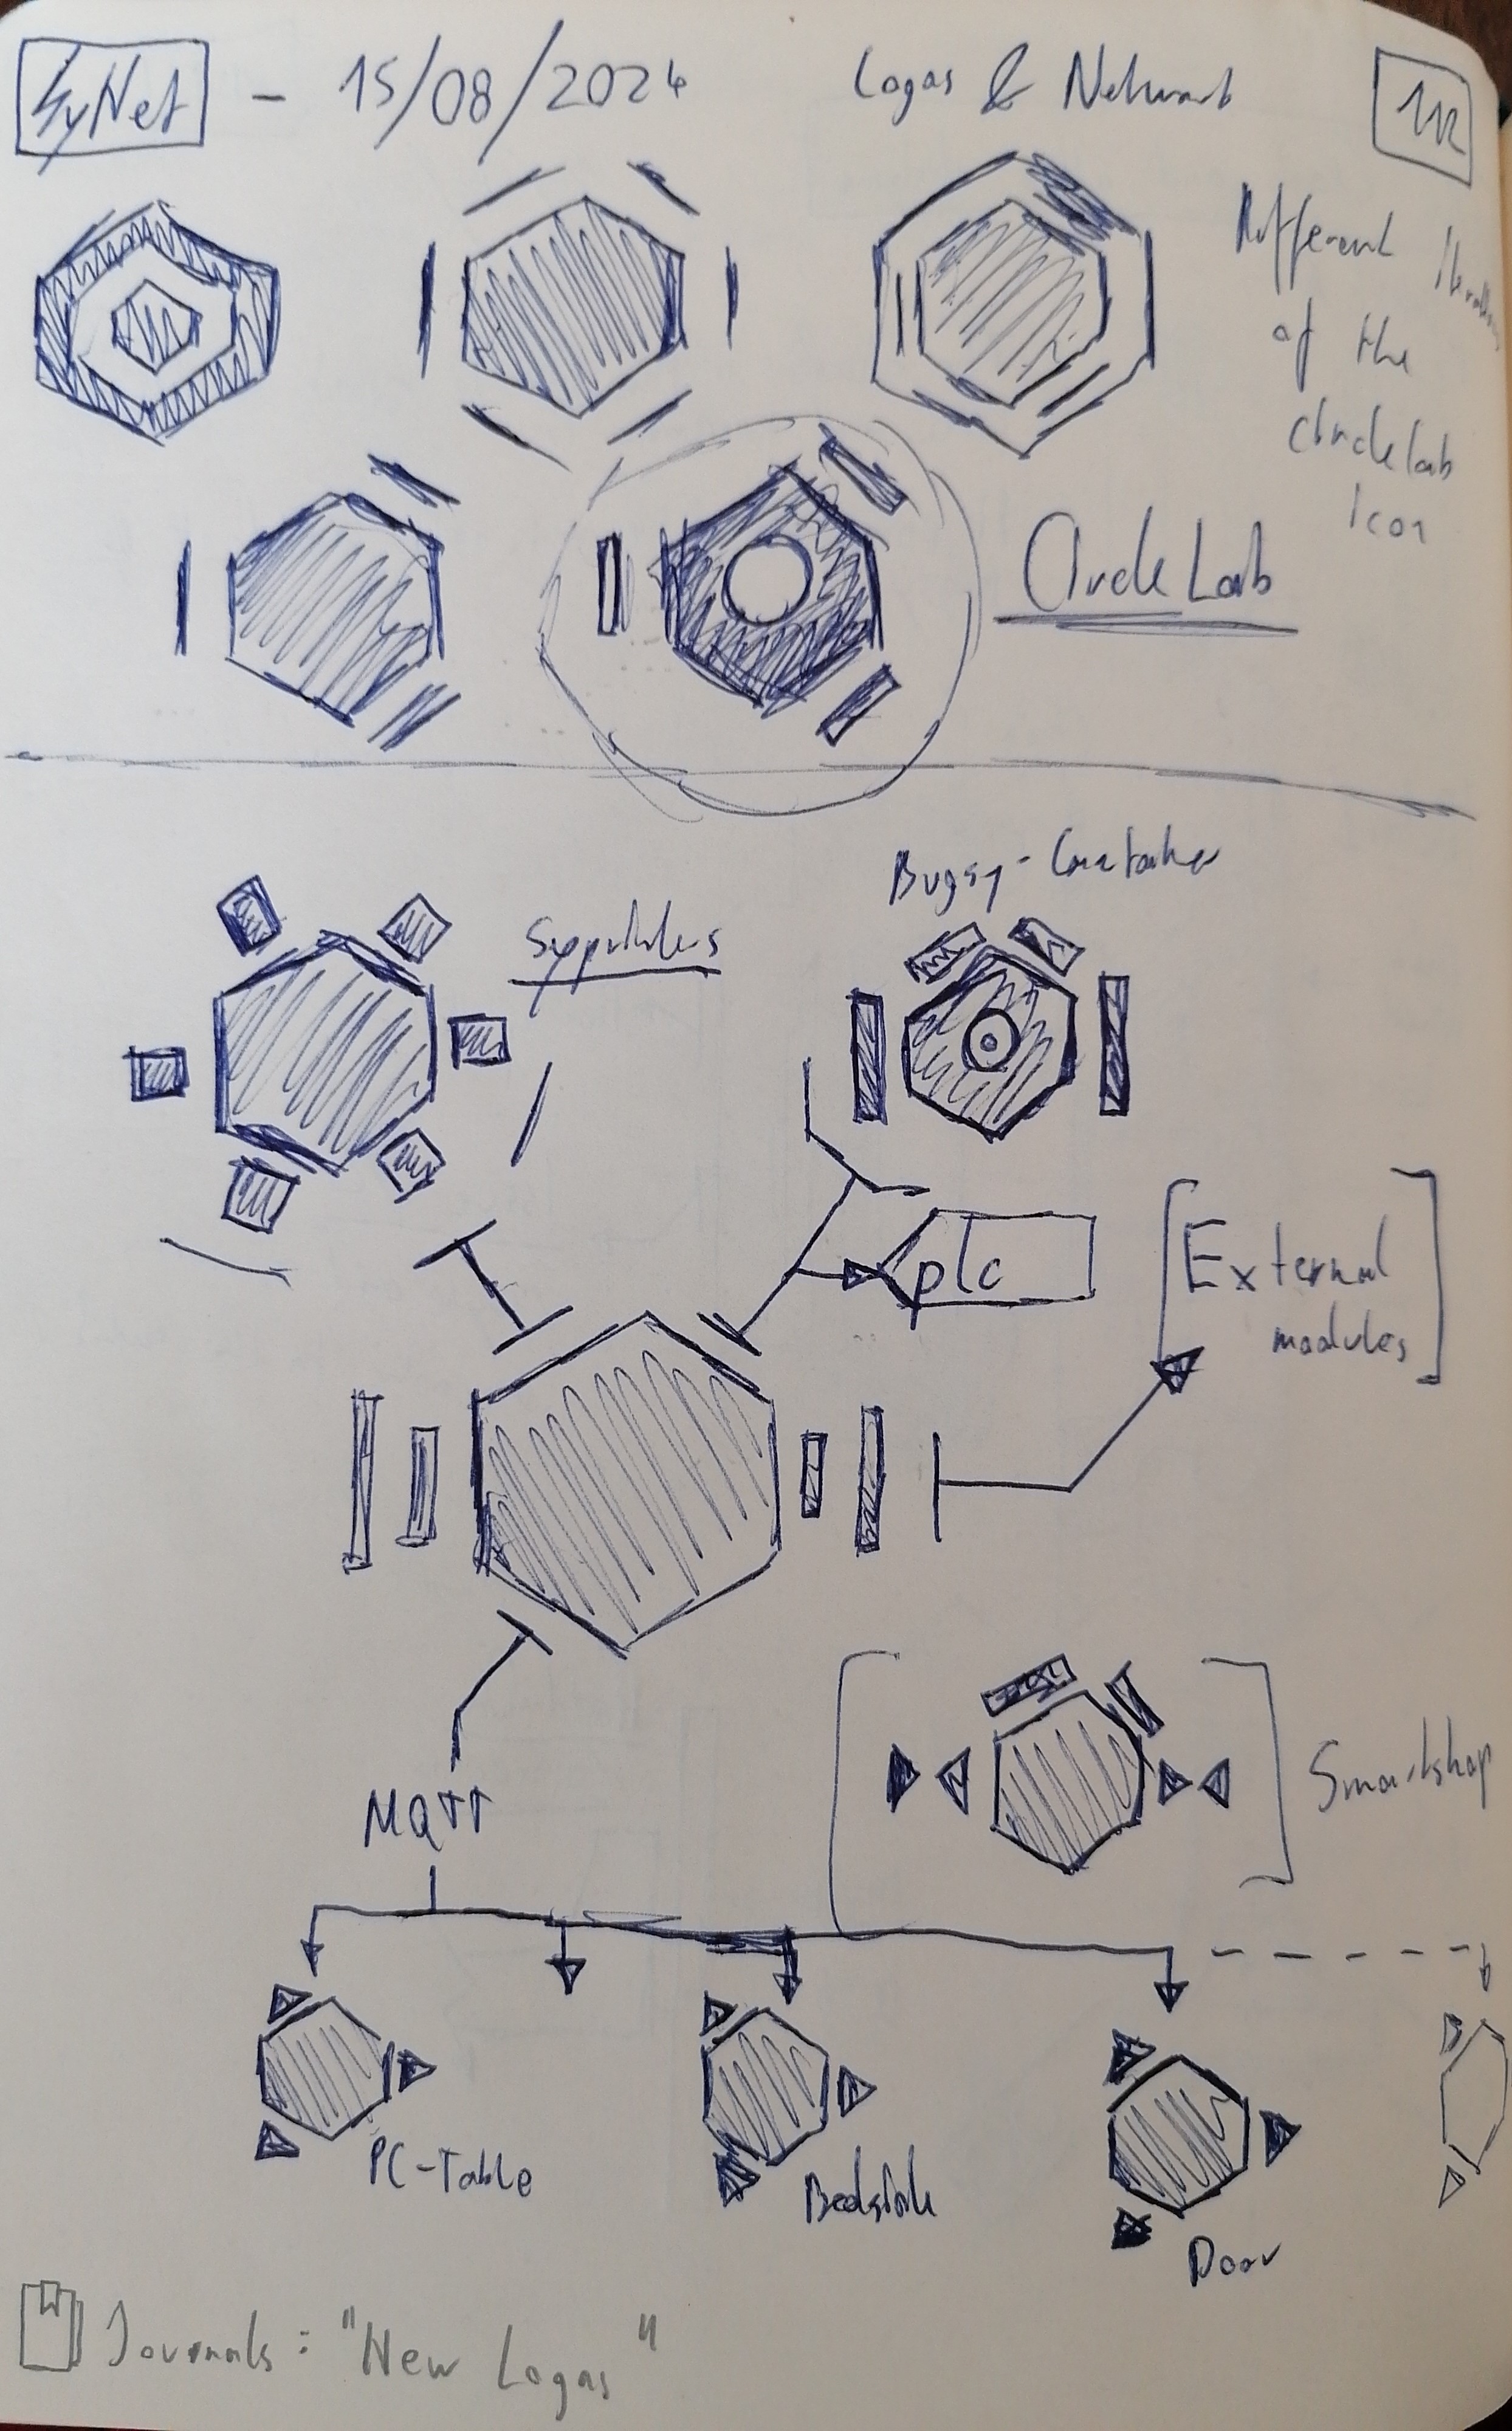 SyNet - 15/08/2024 Logos & Network
Different Iterations
of the
circlelab
Icon
CircleLab
Bugsy-Caretaker
plc
[External
modules]
MQTT
Smartshop
PC-Table
Bedside
Door
Journals: "New Logos"